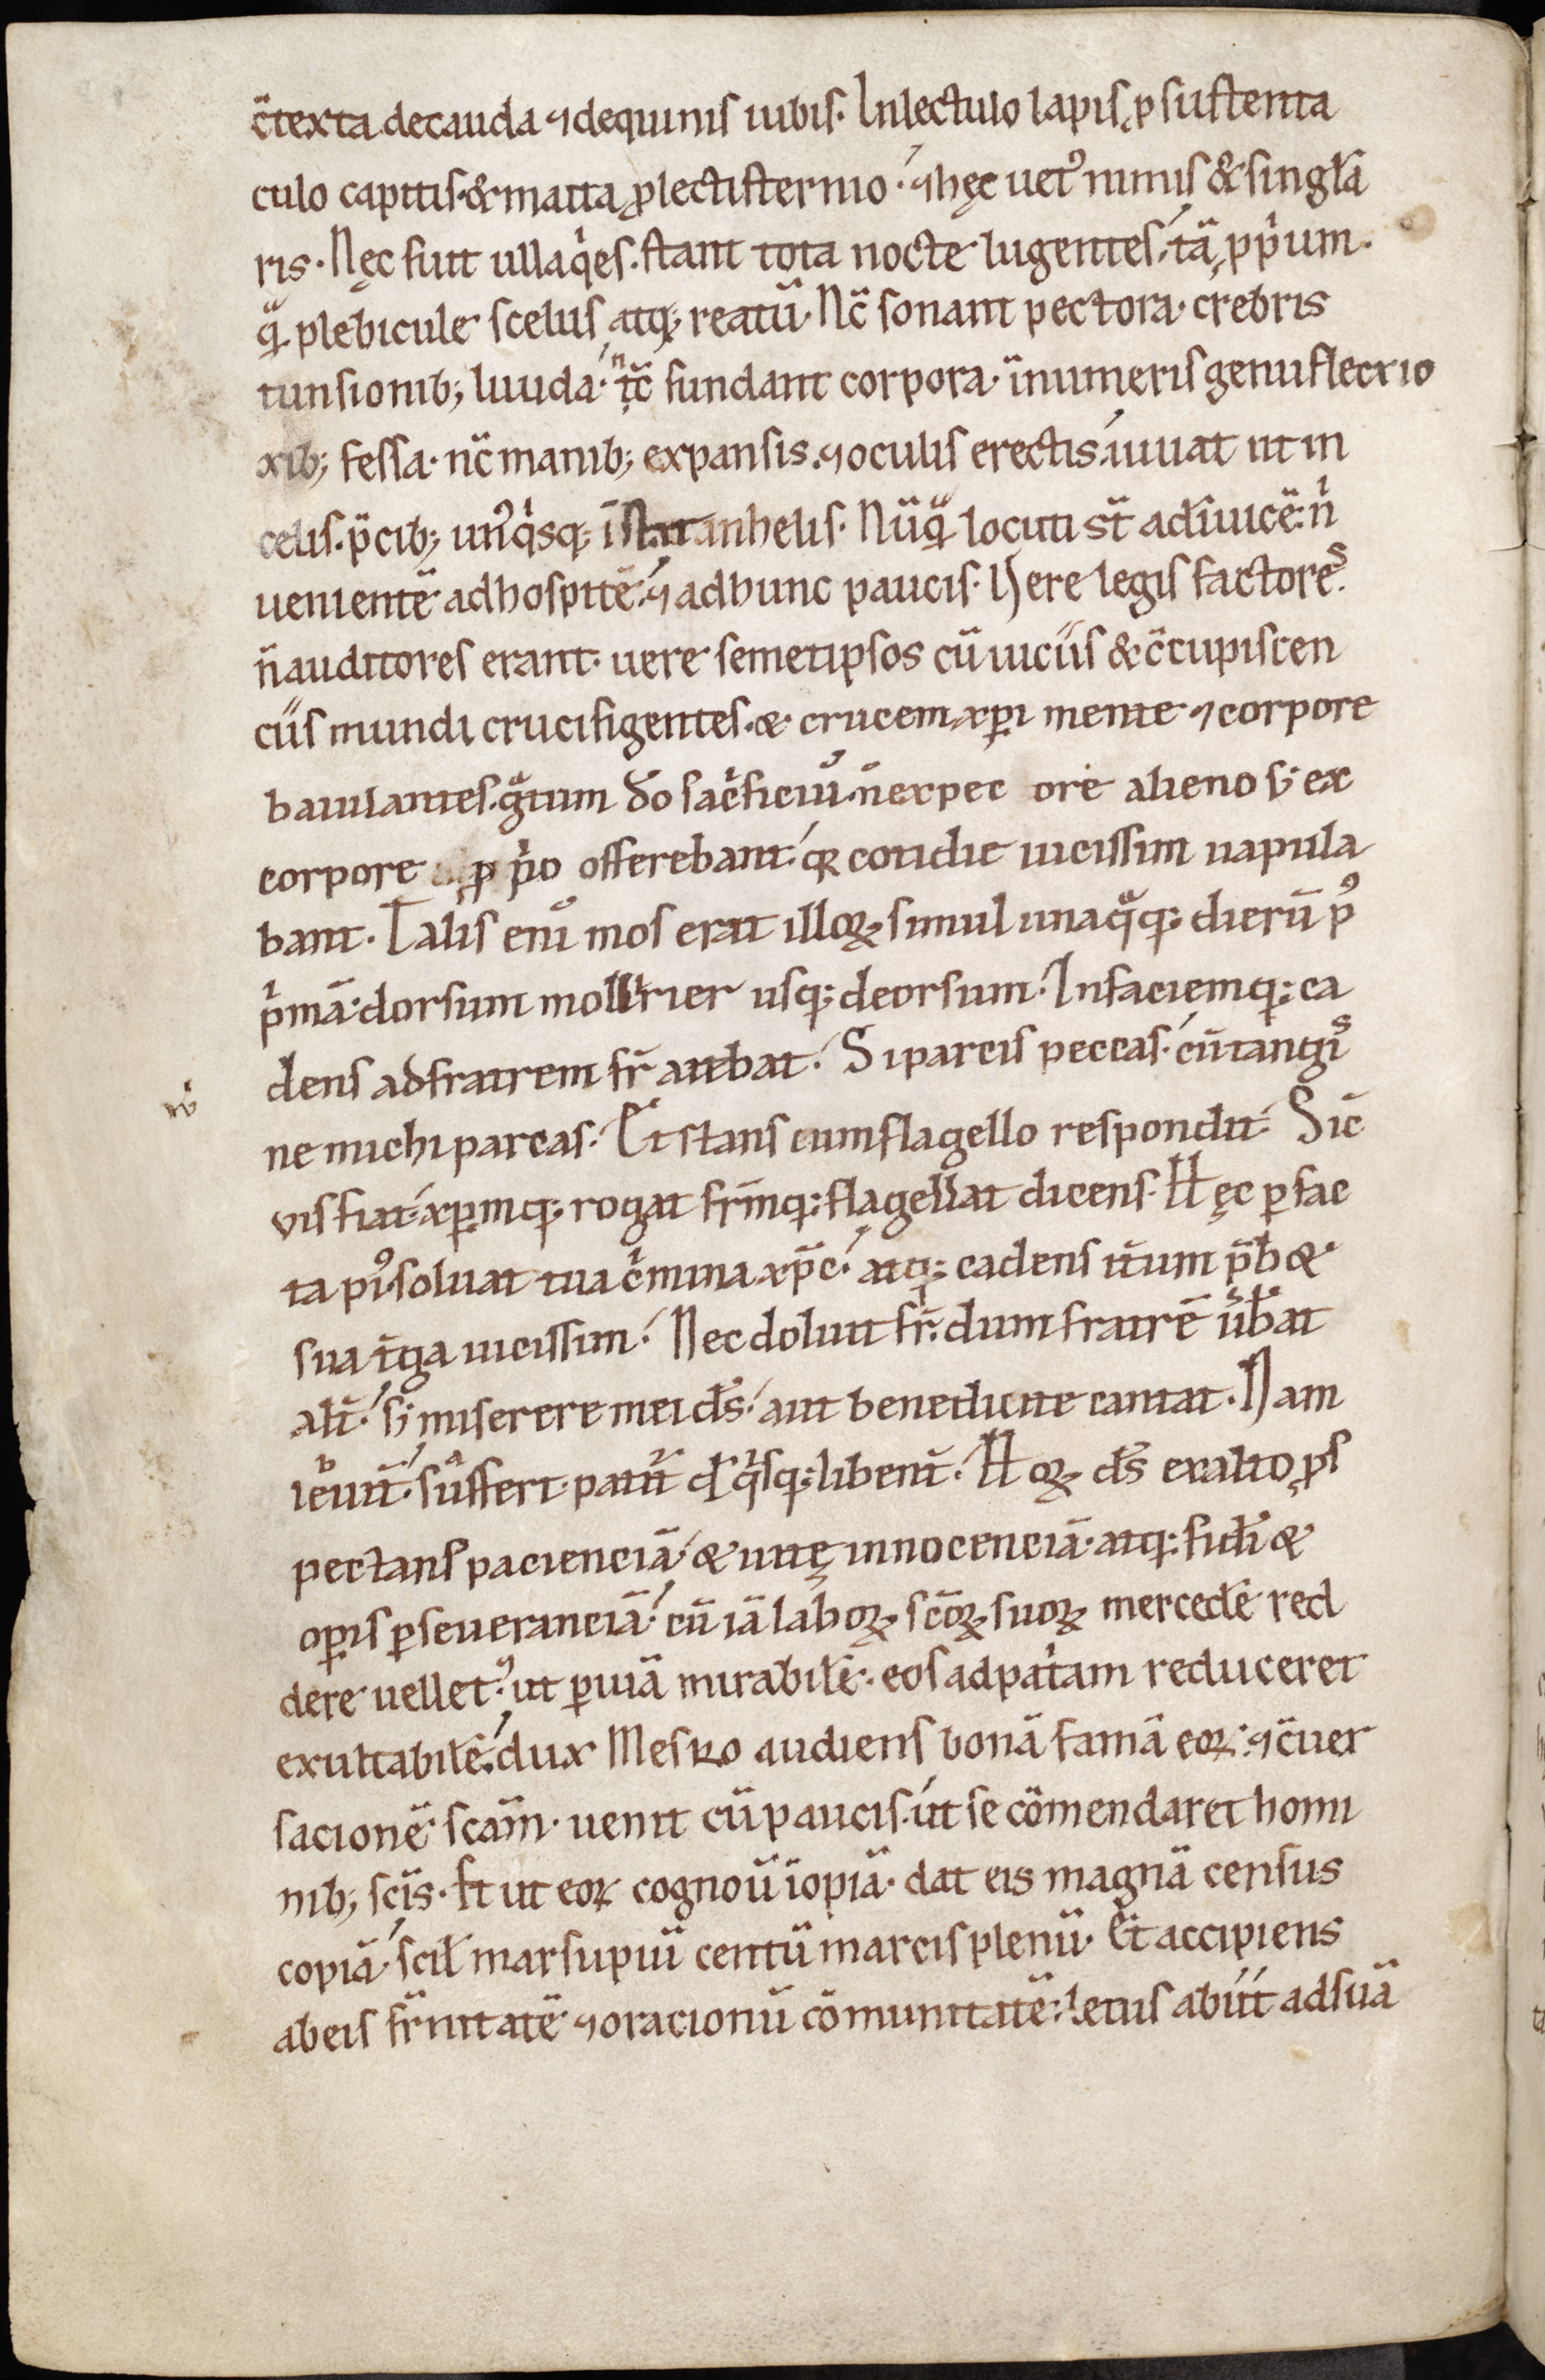 c̄texta decauda ⁊dequinis iubis. Inlectulo lapis, ꝓ sustenta
culo capitis.&matta ꝓlectisternio. ⁊hęc uetꝰ nimis & singła
ris. Nęc fuit ulla qͥes. stant tota nocte lugentes. tā ꝓpͥum.
qͣ̄ plebicule scelus atq; reatū. Nc̄ sonant pectora. crebris
tunsionib; liuida. ⁿtc̄ fundant corpora. īnumeris genuflectio
nib; fessa. nc̄ manib; expansis. ⁊oculis erectis. iuuat ut in
celis. p̄cib; unꝰqͥsq; īstat anhelis. Nūqͣ̄ locuti st̄ adīuicē. nͥ
uenientē ad hospitē. ⁊ adhunc paucis. Here legis factores.
n̄ auditores erant. uere semetipsos cū uiciis & c̄cupiscen
ciis mundi crucifigentes. & crucem xp̄i mente ⁊ corpore
baiulantes. gͣtum do sac̓ficiū. n̄ expec ore alieno s; ex
corpore ꝓpͥo offerebant. qꝛ cotidie uicissim uapula
bant. Talis enī mos erat illoꝝ simul unaqͣq; dierū pꝰ
pͥmā. dorsum mollirier usq; deorsum. Infaciemq; ca
dens ad fratrem fr̄ aiebat. Si parcis peccas. cū tangis
ne michi parcas. Et stans cum flagello respondit. Sic̄
vis fiat. xp̄mq; rogat fr̄mq; flagellat dicens. Hęc ꝑ fac
ta piꝰ soluat tua cͥmina xp̄c. atq; cadens it̄um p̄b&
sua t̄ga uicissim. Nec doluit fr̄. dum fratrē ūbat
alt̄. s; miserere mei ds̄. aut benedicite cantat. Nam
leuit̄. suffert. patit̄ qd̄ qͥsq; libent̄. Hoꝝ ds̄ exalto ꝓs
pectans pacienciā. & uitę innocenciā. atq; fidī &
oꝑis ꝑseueranciā. cū iā laboꝝ scōꝝ suoꝝ mercedē red
dere uellet. ut ꝑ uiā mirabilē. eos ad patͥam reduceret
exultabilē. dux Mesko audiens bonā famā eoꝝ. ⁊c̄uer
sacionē scām. uenit cū paucis. ut se cōmendaret homi
nib; scīs. Et ut eoꝝ cognoū īopiā. dat eis magnā census
copiā. scił marsupiū centū marcis plenū. Et accipiens
ab eis fr̄nitatē ⁊oracionū cōmunitatē. Letus abiit adsuā